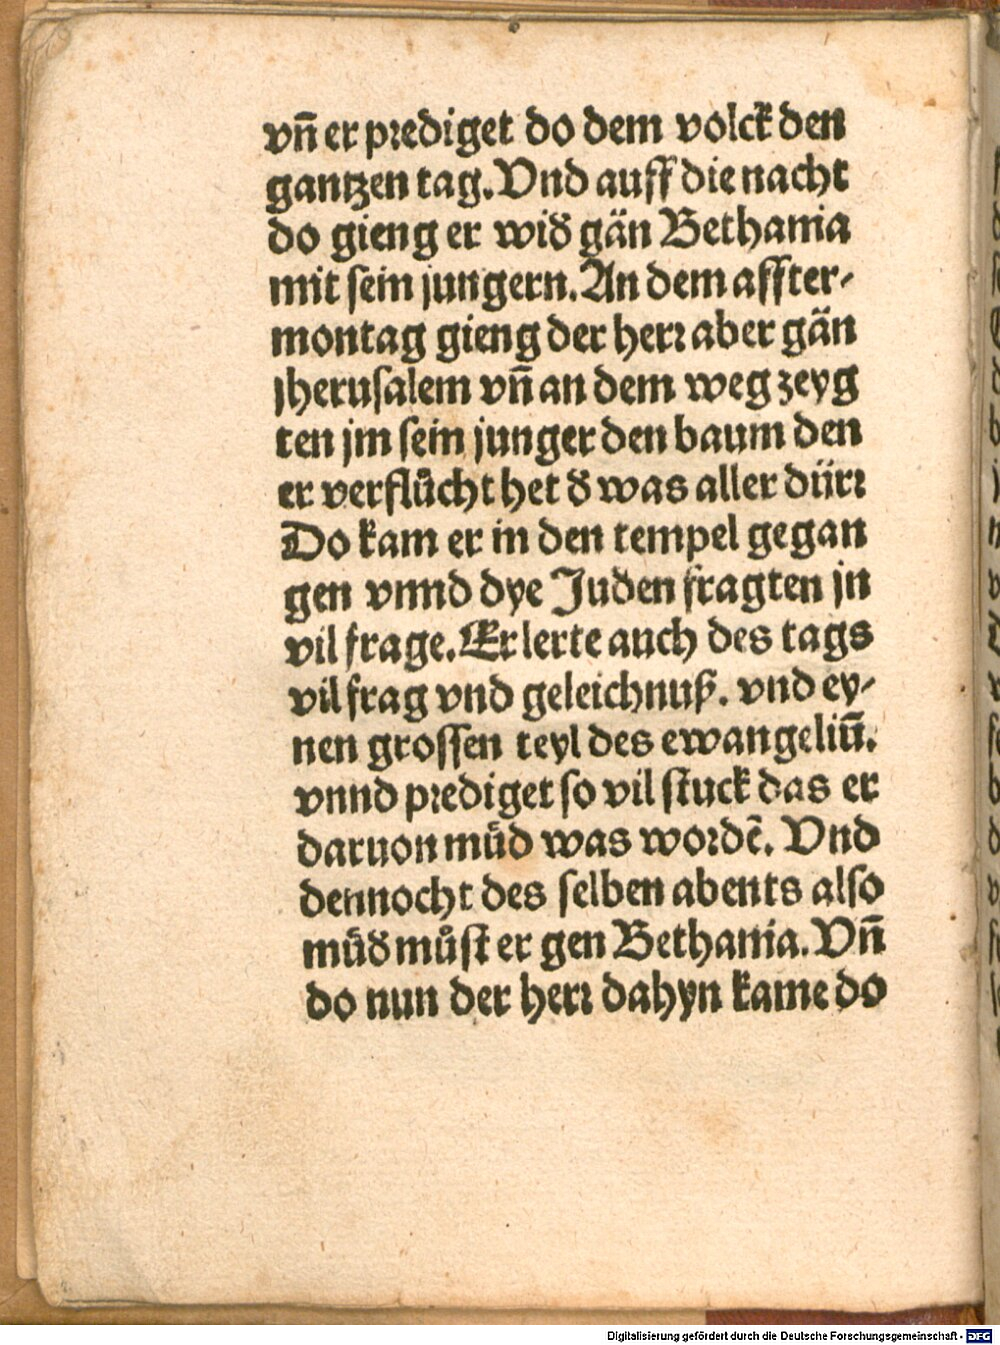 vn̄ er prediget do dem volck den
gantzen tag. Vnd auff die nacht
do gieng er wiđ gän Bethania
mit sein jungern. An dem affter-
montag gieng der herr aber gän
jherusalem vn̄ an dem weg zeyg
ten jm sein junger den baum den
er verflůcht het đ was aller dürr
Do kam er in den tempel gegan
gen vnnd dye Juden fragten jn
vil frage. Er lerte auch des tags
vil frag vnd geleichnuß. vnd ey-
nen grossen teyl des ewangeliū.
vnnd prediget so vil stuck das er
daruon müd was wordē. Vnd
dennocht des selben abents also
müđ můst er gen Bethania. Vn̄
do nun der herr dahyn kame do
Digitalisierung gefördert durch die Deutsche Forschungsgemeinschaft - DFG